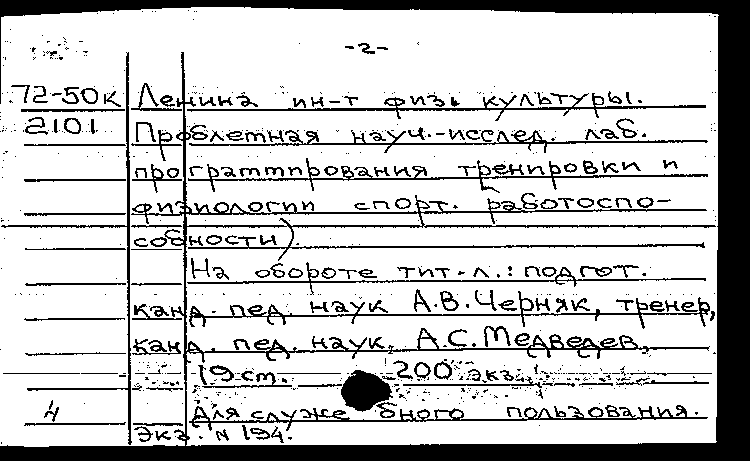 -2-
72-50к Ленина ин-т физ. культуры.
2101 Проблемная науч.-исслед. лаб.
программирования тренировки и
физиологии спорт. работоспо-
собности).
На обороте тит. л.: подгот.
канд. пед. наук А.В.Черняк, тренер,
канд. пед. наук, А.С.Медведев,
19 ст. 200 экз.
4 Для служебного пользования.
Экз. N 194.